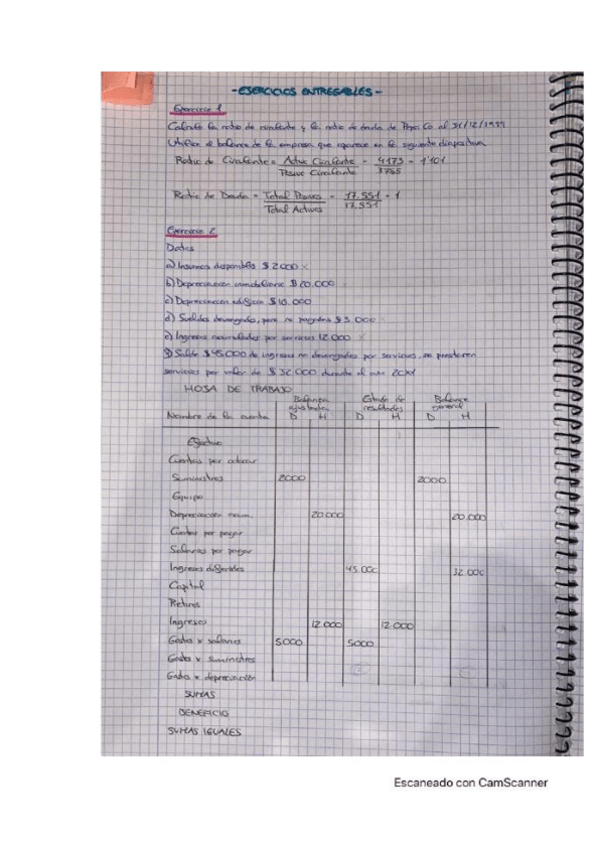 -EJERCICIOS ENTREGABLES-
Ejercicio 1
Calcule la ratio de circulante y la ratio de deuda de Pepsi Co al 31/12/1999
Utilice el balance de la empresa que aparece en la siguiente diapositiva
Ratio de Circulante = Activo Circulante = 4173 = 1'101
Pasivo Circulante 3788
Ratio de Deuda = Total Pasivo = 17.551 = 1
Total Activos 17.551
Ejercicio 2
Datos
a) Insumos disponibles $ 2000
b) Depreciación $ 20.000
c) Depreciación edificio $ 10.000
d) Sueldos devengados, pero no pagados $ 5.000
e) Ingresos acumulados por servicios 12.000
f) Saldo $ 45.000 de ingresos no devengados por servicios, se prestaron
servicios por valor de $ 32.000 durante el año 20X1
HOJA DE TRABAJO
Balanza ajustada Estado de resultados Balance general
Nombre de la cuenta D H D H D H
Efectivo
Cuentas por cobrar
Suministros 2000 2000
Equipo
Depreciación acum. 20.000 20.000
Cuentas por pagar
Salarios por pagar
Ingresos diferidos 45.000 32.000
Capital
Retiros
Ingresos 12.000 12.000
Gastos x salarios 5000 5000
Gastos x suministros
Gastos x depreciación
SUMAS
BENEFICIO
SUMAS IGUALES
Escaneado con CamScanner